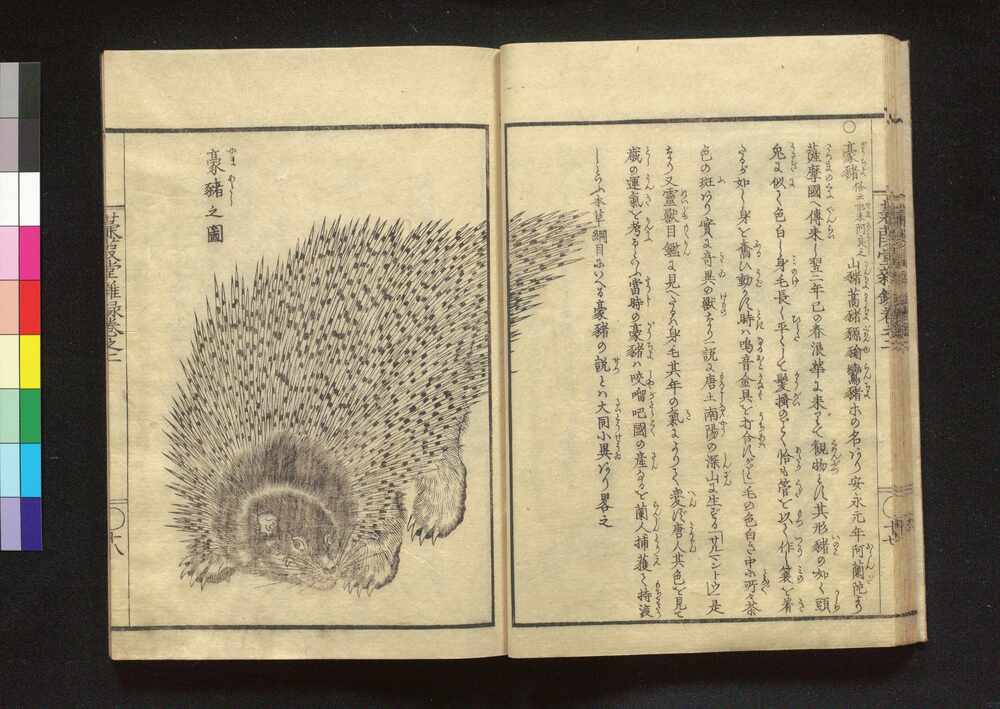 ○豪豬 山豬蒿豬豲㺄鸞豬ホの名あり安永元年阿蘭陀より
薩摩國へ傳来し翌二年巳の春浪華に来りて観物とす其形豬の如く頭
兎に似て色白し身毛長く平くして髪搔のごとく恰も管を以て作し簑を着
たるが如し身を奮ひ動かす時ハ鳴音金具を打合すごとし毛の色白き中ホ所々茶
色の斑あり實に奇異の獣なり一説に唐土南陽の深山に生ずる「サルハントウ」是
なり又霊獣目鑑に見へたるハ身毛其年の氣によりて変ず唐人其色を見て
歳の運氣を考るとふ當時の豪豬ハ咬𠺕吧國の産なるを蘭人捕獲て持渡
しとふ本草綱目にいへる豪豬の説とハ大同小異あり畧之
豪豬之圖
やまあらし
蒹葭堂雜録巻之二
十八
十七